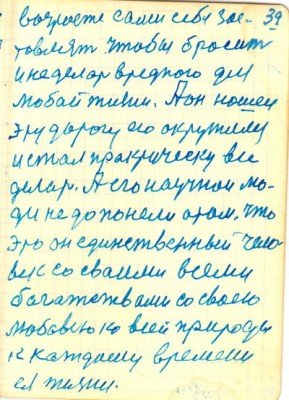 39
возросте сами себя зас-
товлят чтобы бросит
и не делат вредного для
любой жизни. А он нашел
эту дорогу его окружил
и стал практически все
делат. А его научнои лю-
ди не допонели о том, что
это он единственный чело-
век со сваими всеми
багатствами со своею
любовию ко всей природы
к каждому времени
ея жизни.